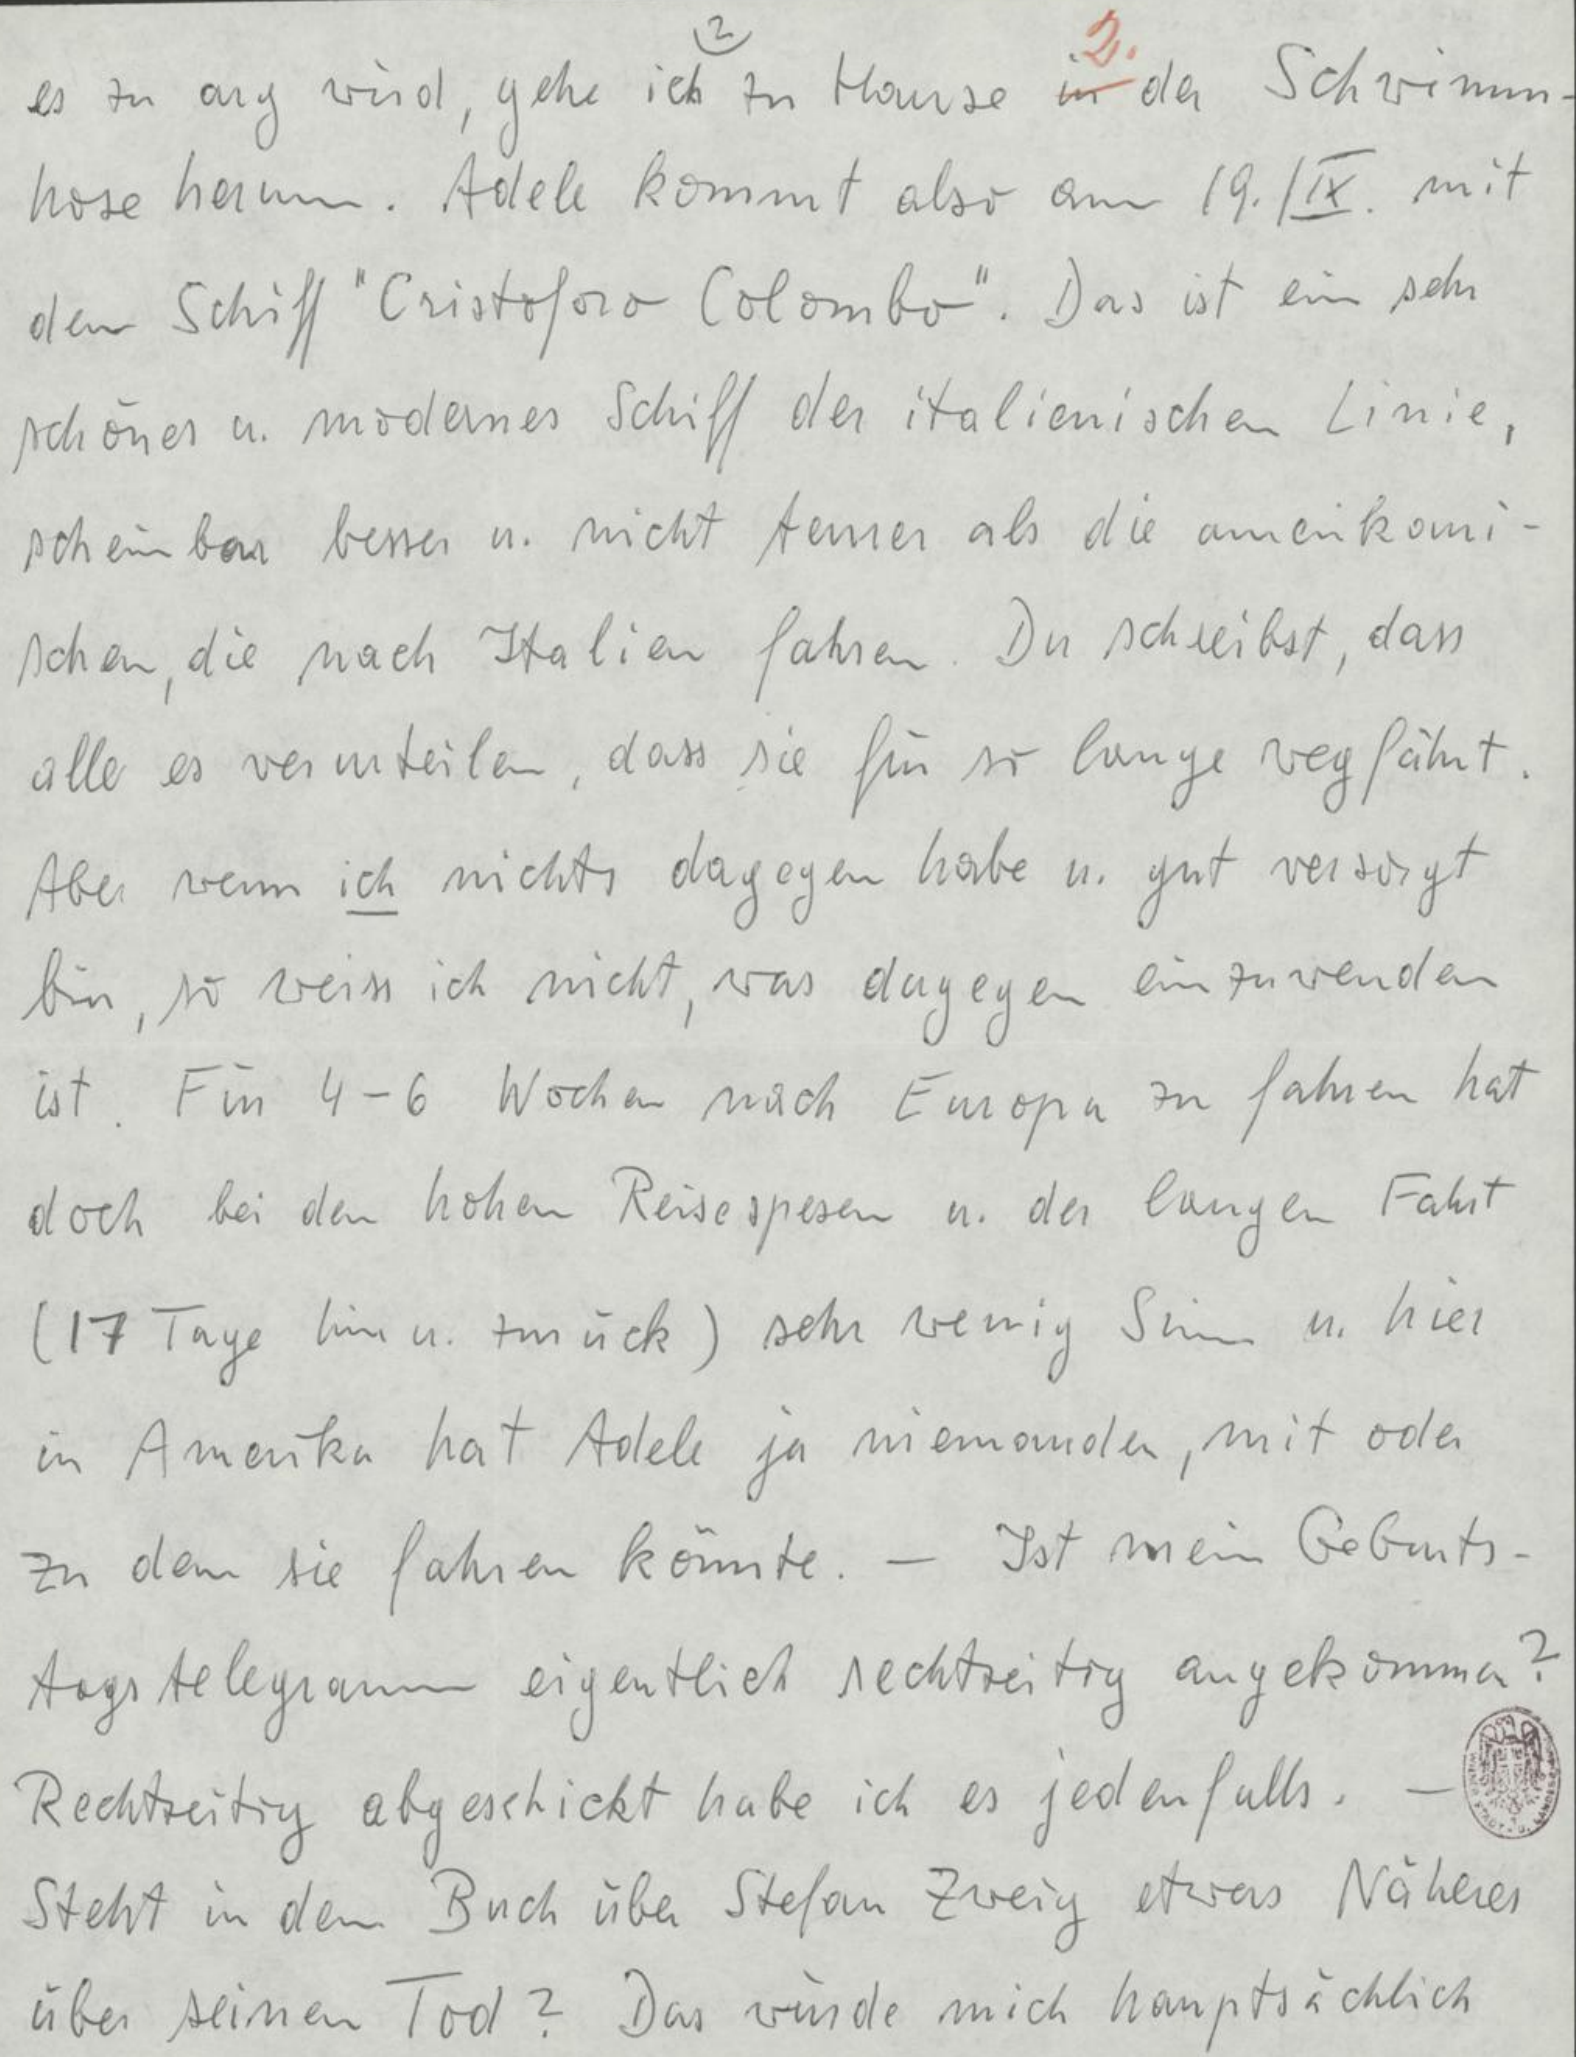 2
2.
es zu arg wird, gehe ich zu Hause in der Schwimm-
hose herum. Adele kommt also am 19./IX. mit
dem Schiff "Cristoforo Colombo". Das ist ein sehr
schönes u. modernes Schiff der italienischen Linie,
scheinbar besser u. nicht teurer als die amerikani-
schen, die nach Italien fahren. Du schreibst, dass
alle es verurteilen, dass sie für so lange wegfährt.
Aber wenn ich nichts dagegen habe u. gut versorgt
bin, so weiss ich nicht, was dagegen einzuwenden
ist. Für 4-6 Wochen nach Europa zu fahren hat
doch bei den hohen Reisespesen u. der langen Fahrt
(17 Tage hin u. zurück) sehr wenig Sinn u. hier
in Amerika hat Adele ja niemanden, mit oder
zu dem sie fahren könnte. — Ist mein Geburts-
tagstelegramm eigentlich rechtzeitig angekommen?
Rechtzeitig abgeschickt habe ich es jedenfalls. —
Steht in dem Buch über Stefan Zweig etwas Näheres
über seinen Tod? Das würde mich hauptsächlich